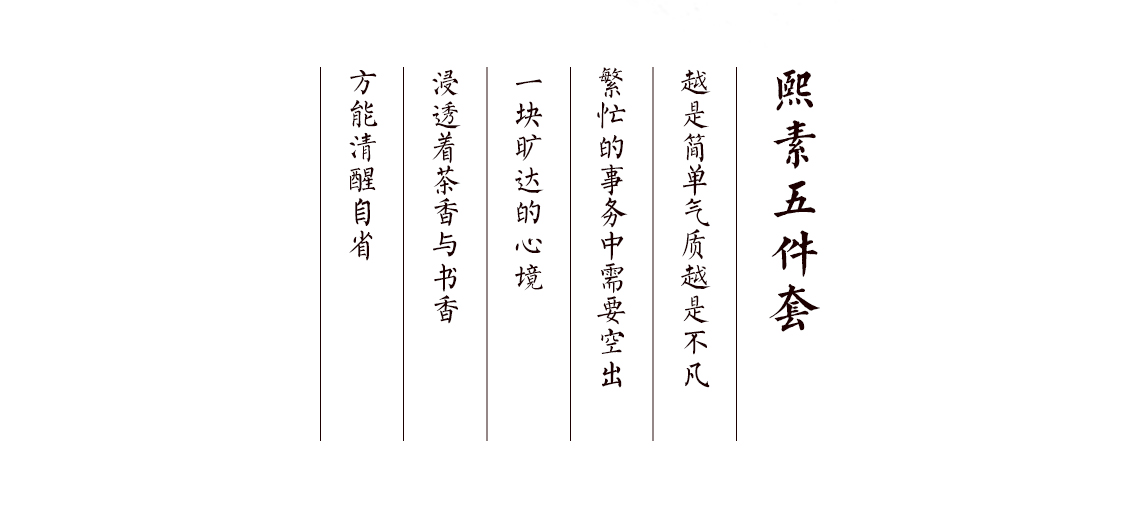 熙素五件套
越是简单气质越是不凡
繁忙的事务中需要空出
一块旷达的心境
浸透着茶香与书香
方能清醒自省